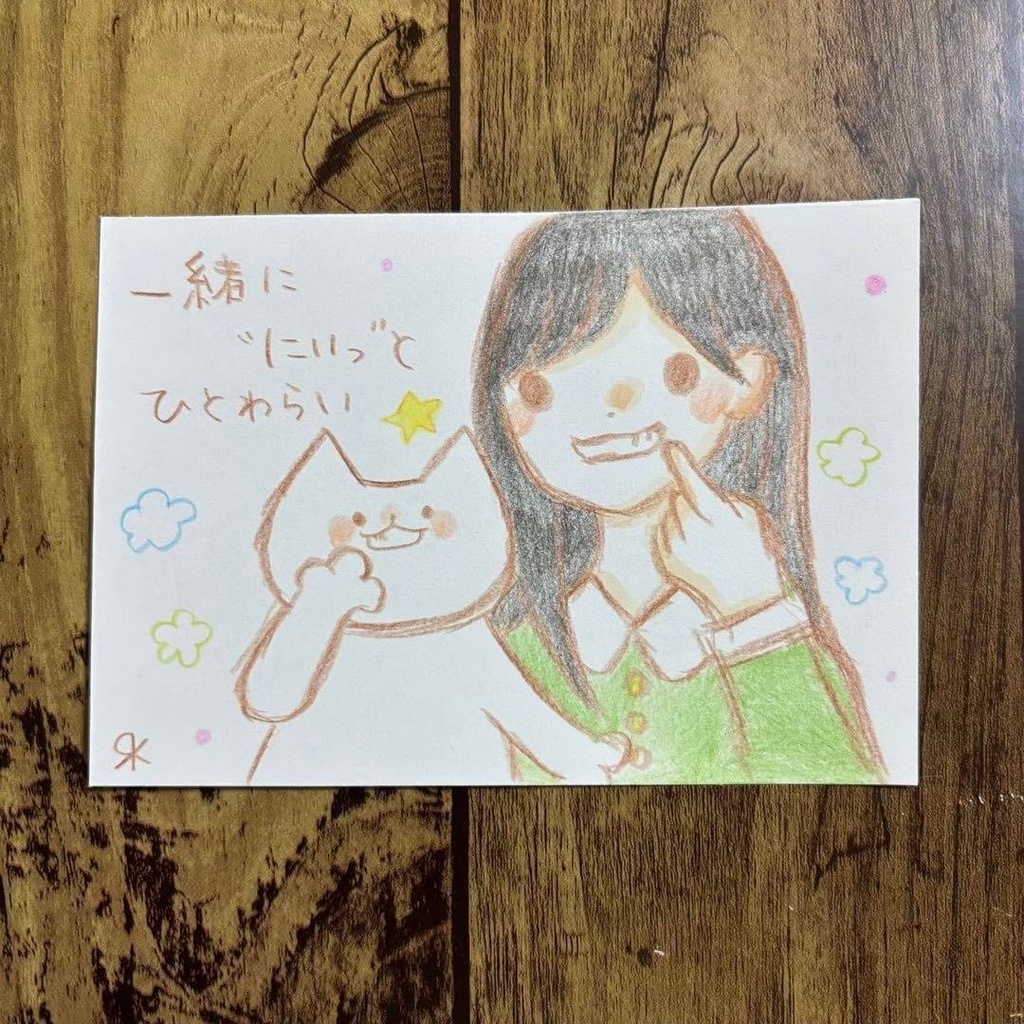 一緒に
"にいっ"と
ひとわらい